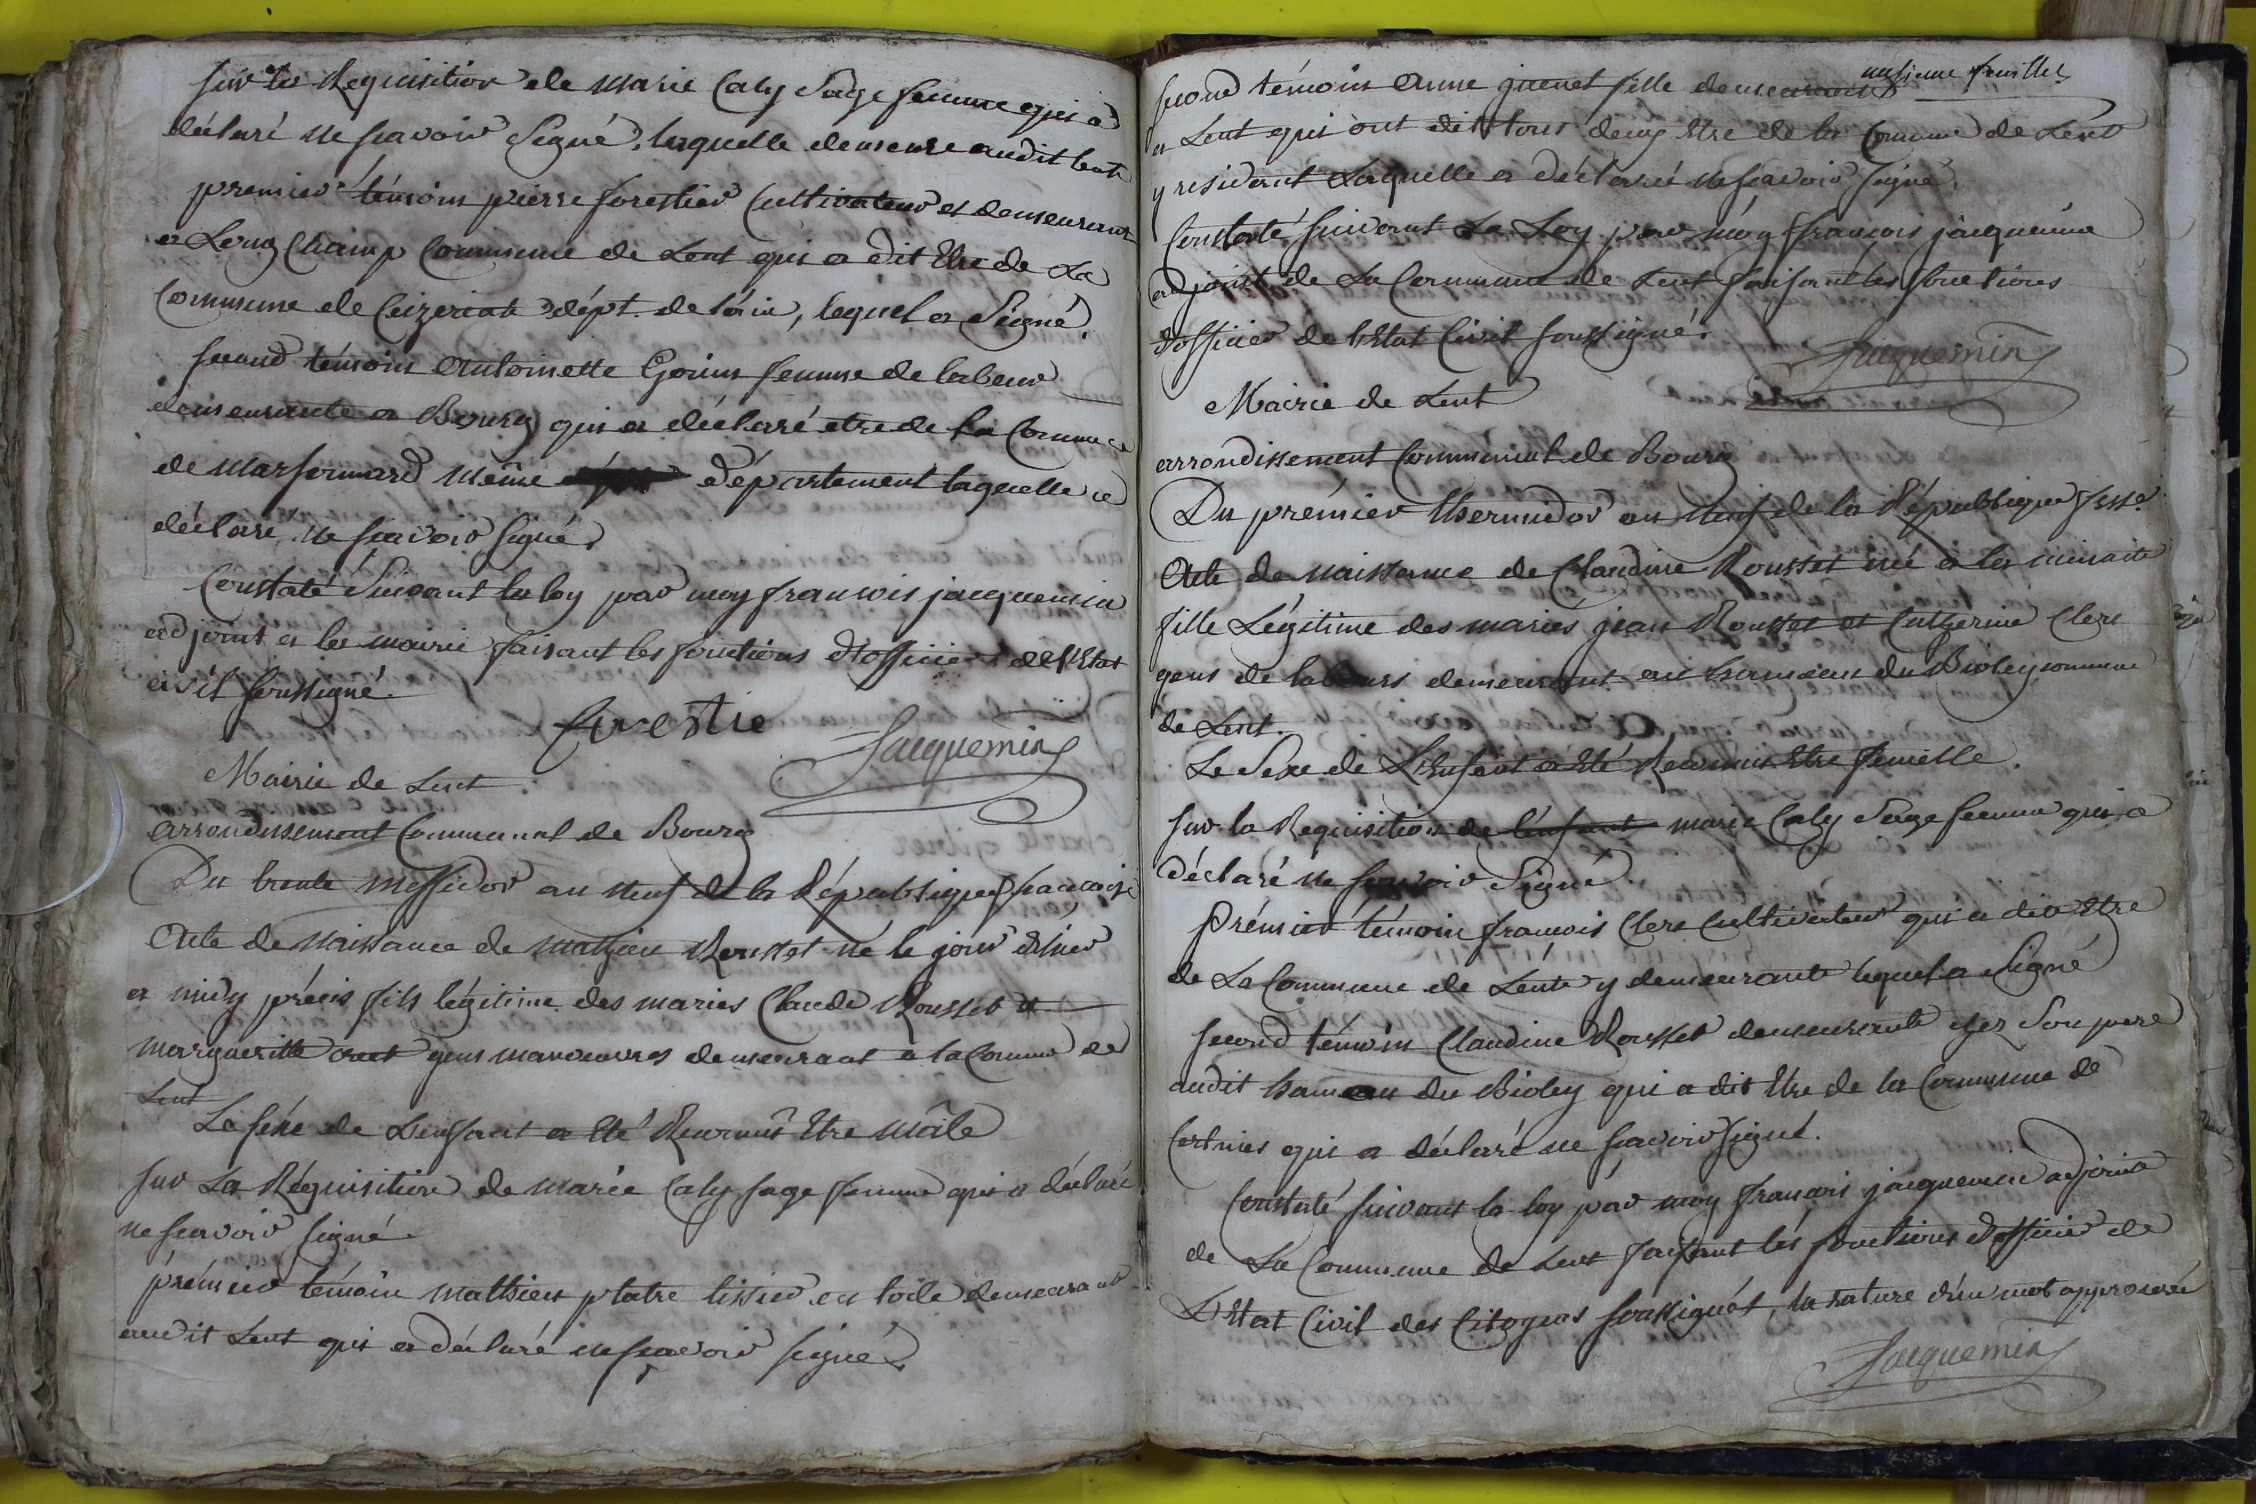 sur la Requisition de marie Caly Sage femme qui a
déclaré ne scavoir Signé, laquelle demeure audit lent
premier témoin pierre forestier Cultivateur et demeurant
a Long Champ Commune de Lent qui a dit Etre de La
Commune de Ceizeriat dépt. de l'ain, lequel a Signé,
second témoin Antoinette femme de labeur
demeurante a Bourg qui a déclaré etre de la Commune
de marsonnard même département laquelle a
déclaré ne scavoir signé,
Constaté Suivant la loy par moy francois jacquemin
adjoint a la mairie faisant les fonctions d'officier de l'Etat
civil soussigné.
forestie
Jacquemin
Mairie de Lent
arrondissement Communal de Bourg
Du trente messidor an neuf de la République francaise
Acte de Naissance de mathieu Rousset né le jour d'hier
a midy précis fils légitime des maries Claude Rousset et
margueritte gens manoeuvres demeurant a la Commune de
Lent
Le sexe de L'enfant a Eté Reconnu Etre mâle
sur La Réquisition de marie Caly sage femme qui a déclaré
ne scavoir signé
prémier témoin mathieu platre tissier en toile demeurant
audit Lent qui a déclaré ne scavoir signé,
onsieme feuillet
second témoin Anne juenet fille demeurant
a Lent qui ont dit tous deux Etre de la Commune de Lent
y residant Laquelle a déclaré ne scavoir signé,
Constaté suivant La Loy par moy francois jacquemin
adjoint de La Commune de Lent faisant les fonctions
d'officier de l'Etat Civil soussigné.
Jacquemin
Mairie de Lent
arrondissement Communal de Bourg
Du prémier thermidor an neuf de la République fsse.
Acte de naissance de Claudine Rousset né a la minuite
fille Légitime des mariés jean Rousset et Catherine Clerc
gens de labeurs demeurant au hameau du Bioley commune
de Lent.
Le Sexe de L'Enfant a Eté Reconnu Etre femelle.
sur la Requisition de l'enfant marie Caly Sage femme qui a
déclaré ne scavoir Signé
Prémier témoin francois Clerc Cultivateur qui a dit Etre
de La Commune de Lent y demeurant lequel a Signé
second témoin Claudine Rousset demeurante chez Son pere
audit hameau du Bioley qui a dit Etre de la Commune de
Certines qui a déclaré ne scavoir signé.
Constaté suivant la loy par moy francois jacquemin adjoint
de La Commune de Lent faisant les fonctions d'officier de
L'Etat Civil des Citoyens soussignés, la rature d'un mot approuvée
Jacquemin